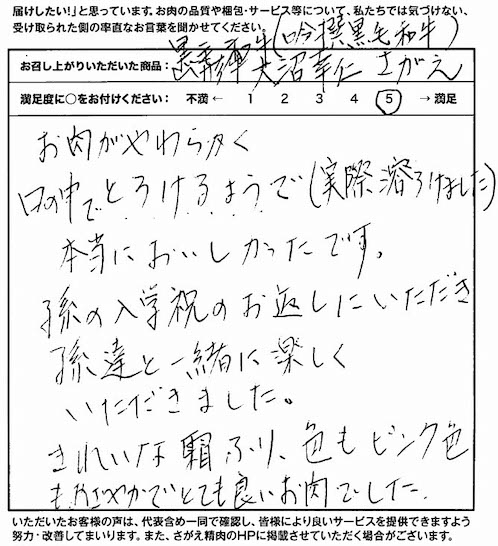 届けしたい！」と思っています。お肉の品質や梱包・サービス等について、私たちでは気づけない、
受け取られた側の率直なお言葉を聞かせてください。
(吟撰黒毛和牛)
お召し上がりいただいた商品： 大沼幸仁 さがえ
満足度に○をお付けください： 不満 ← 1 2 3 4 5 → 満足
お肉がやわらかく
口の中でとろけるようで(実際溶ろけました)
本当においしかったです。
孫の入学祝のお返しにいただき
孫達と一緒に楽しく
いただきました。
きれいな霜ふり、色もピンク色
もあざやかでとても良いお肉でした。
いただいたお客様の声は、代表含め一同で確認し、皆様により良いサービスを提供できますよう
努力・改善してまいります。また、さがえ精肉のHPに掲載させていただく場合がございます。